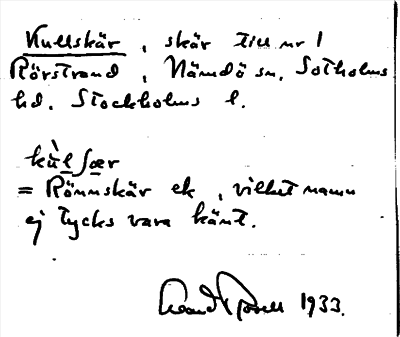 Kullskär, skär till nr 1
Rörstrand, Nämdö sn, Sotholms
hd. Stockholms l.
kùlſær
= Rönnskär ek, vilket namn
ej tycks vara känt.
1933.